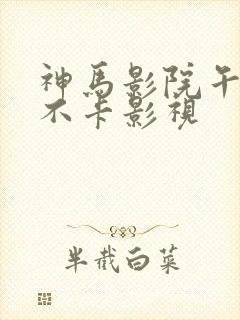 神馬影院午
不卡影視
半截白菜